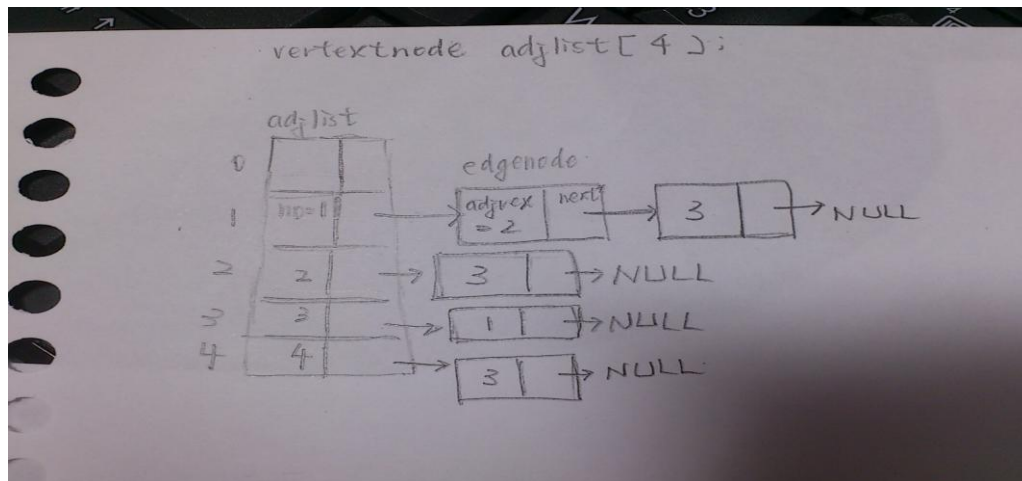 vertextnode adjlist[4];
adjlist
0
edgenode
1 no=1 adjvex =2 next 3 NULL
2 2 3 NULL
3 3 1 NULL
4 4 3 NULL